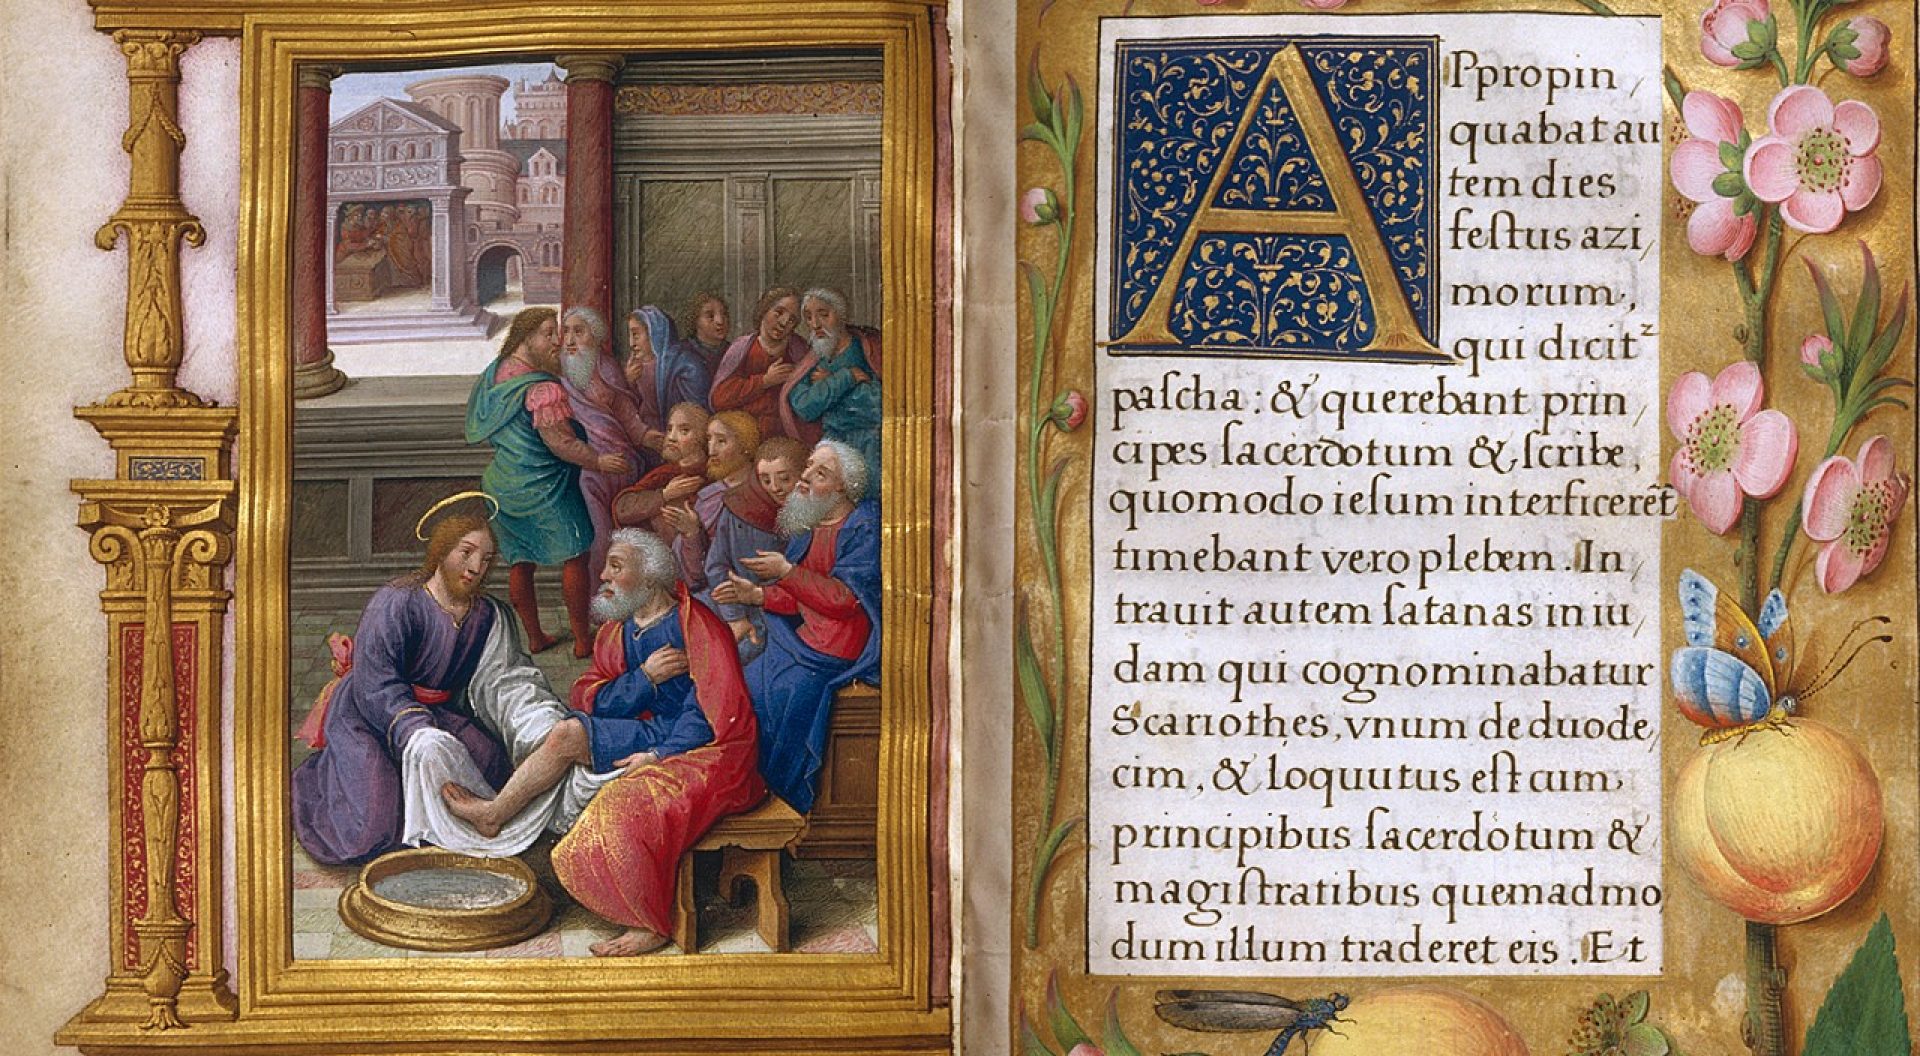 APpropin,
quabat au
tem dies
feſtus azi,
morum,
qui dicitᶻ
paſcha: & querebant prin,
cipes ſacerdotum & ſcribe,
quomodo ieſum interficerēt
timebant vero plebem. In,
trauit autem ſatanas in iu,
dam qui cognominabatur
Scariothes, vnum de duode,
cim, & loquutus eſt cum
principibus ſacerdotum &
magiſtratibus quemadmo,
dum illum traderet eis. Et